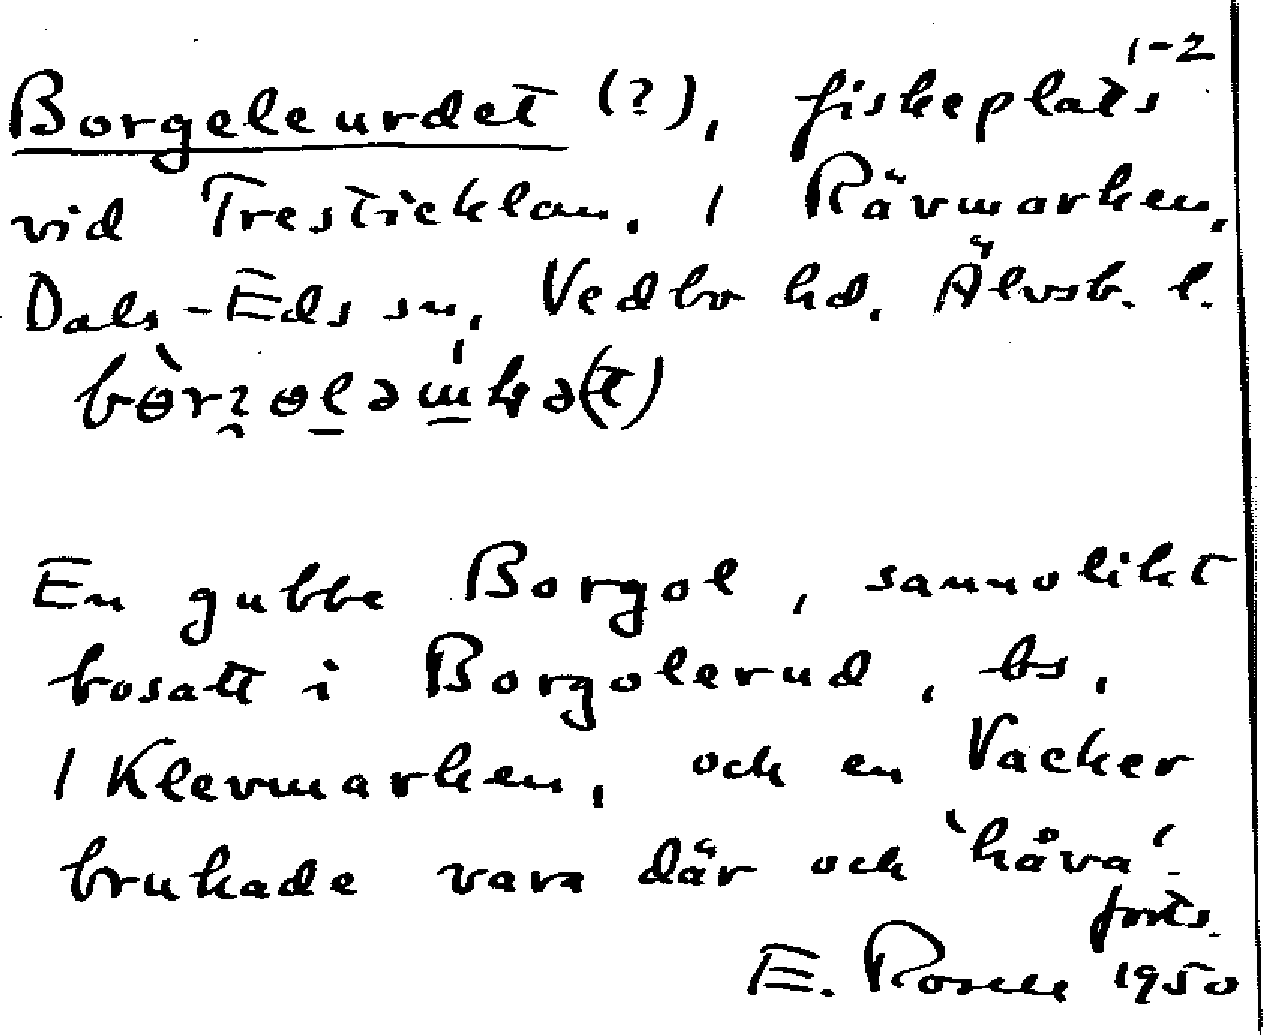 1-2
Borgeleurdet (?), fiskeplats
vid Tresticklan, / Rävmarken,
Dals-Eds sn, Vedbo hd. Älvsb. l.
En gubbe Borgol, sannolikt
bosatt i Borgolerud, bs,
/ Klevmarken, och en Vacker
brukade vara där och 'håva'.
forts.
E. Rosell 1950